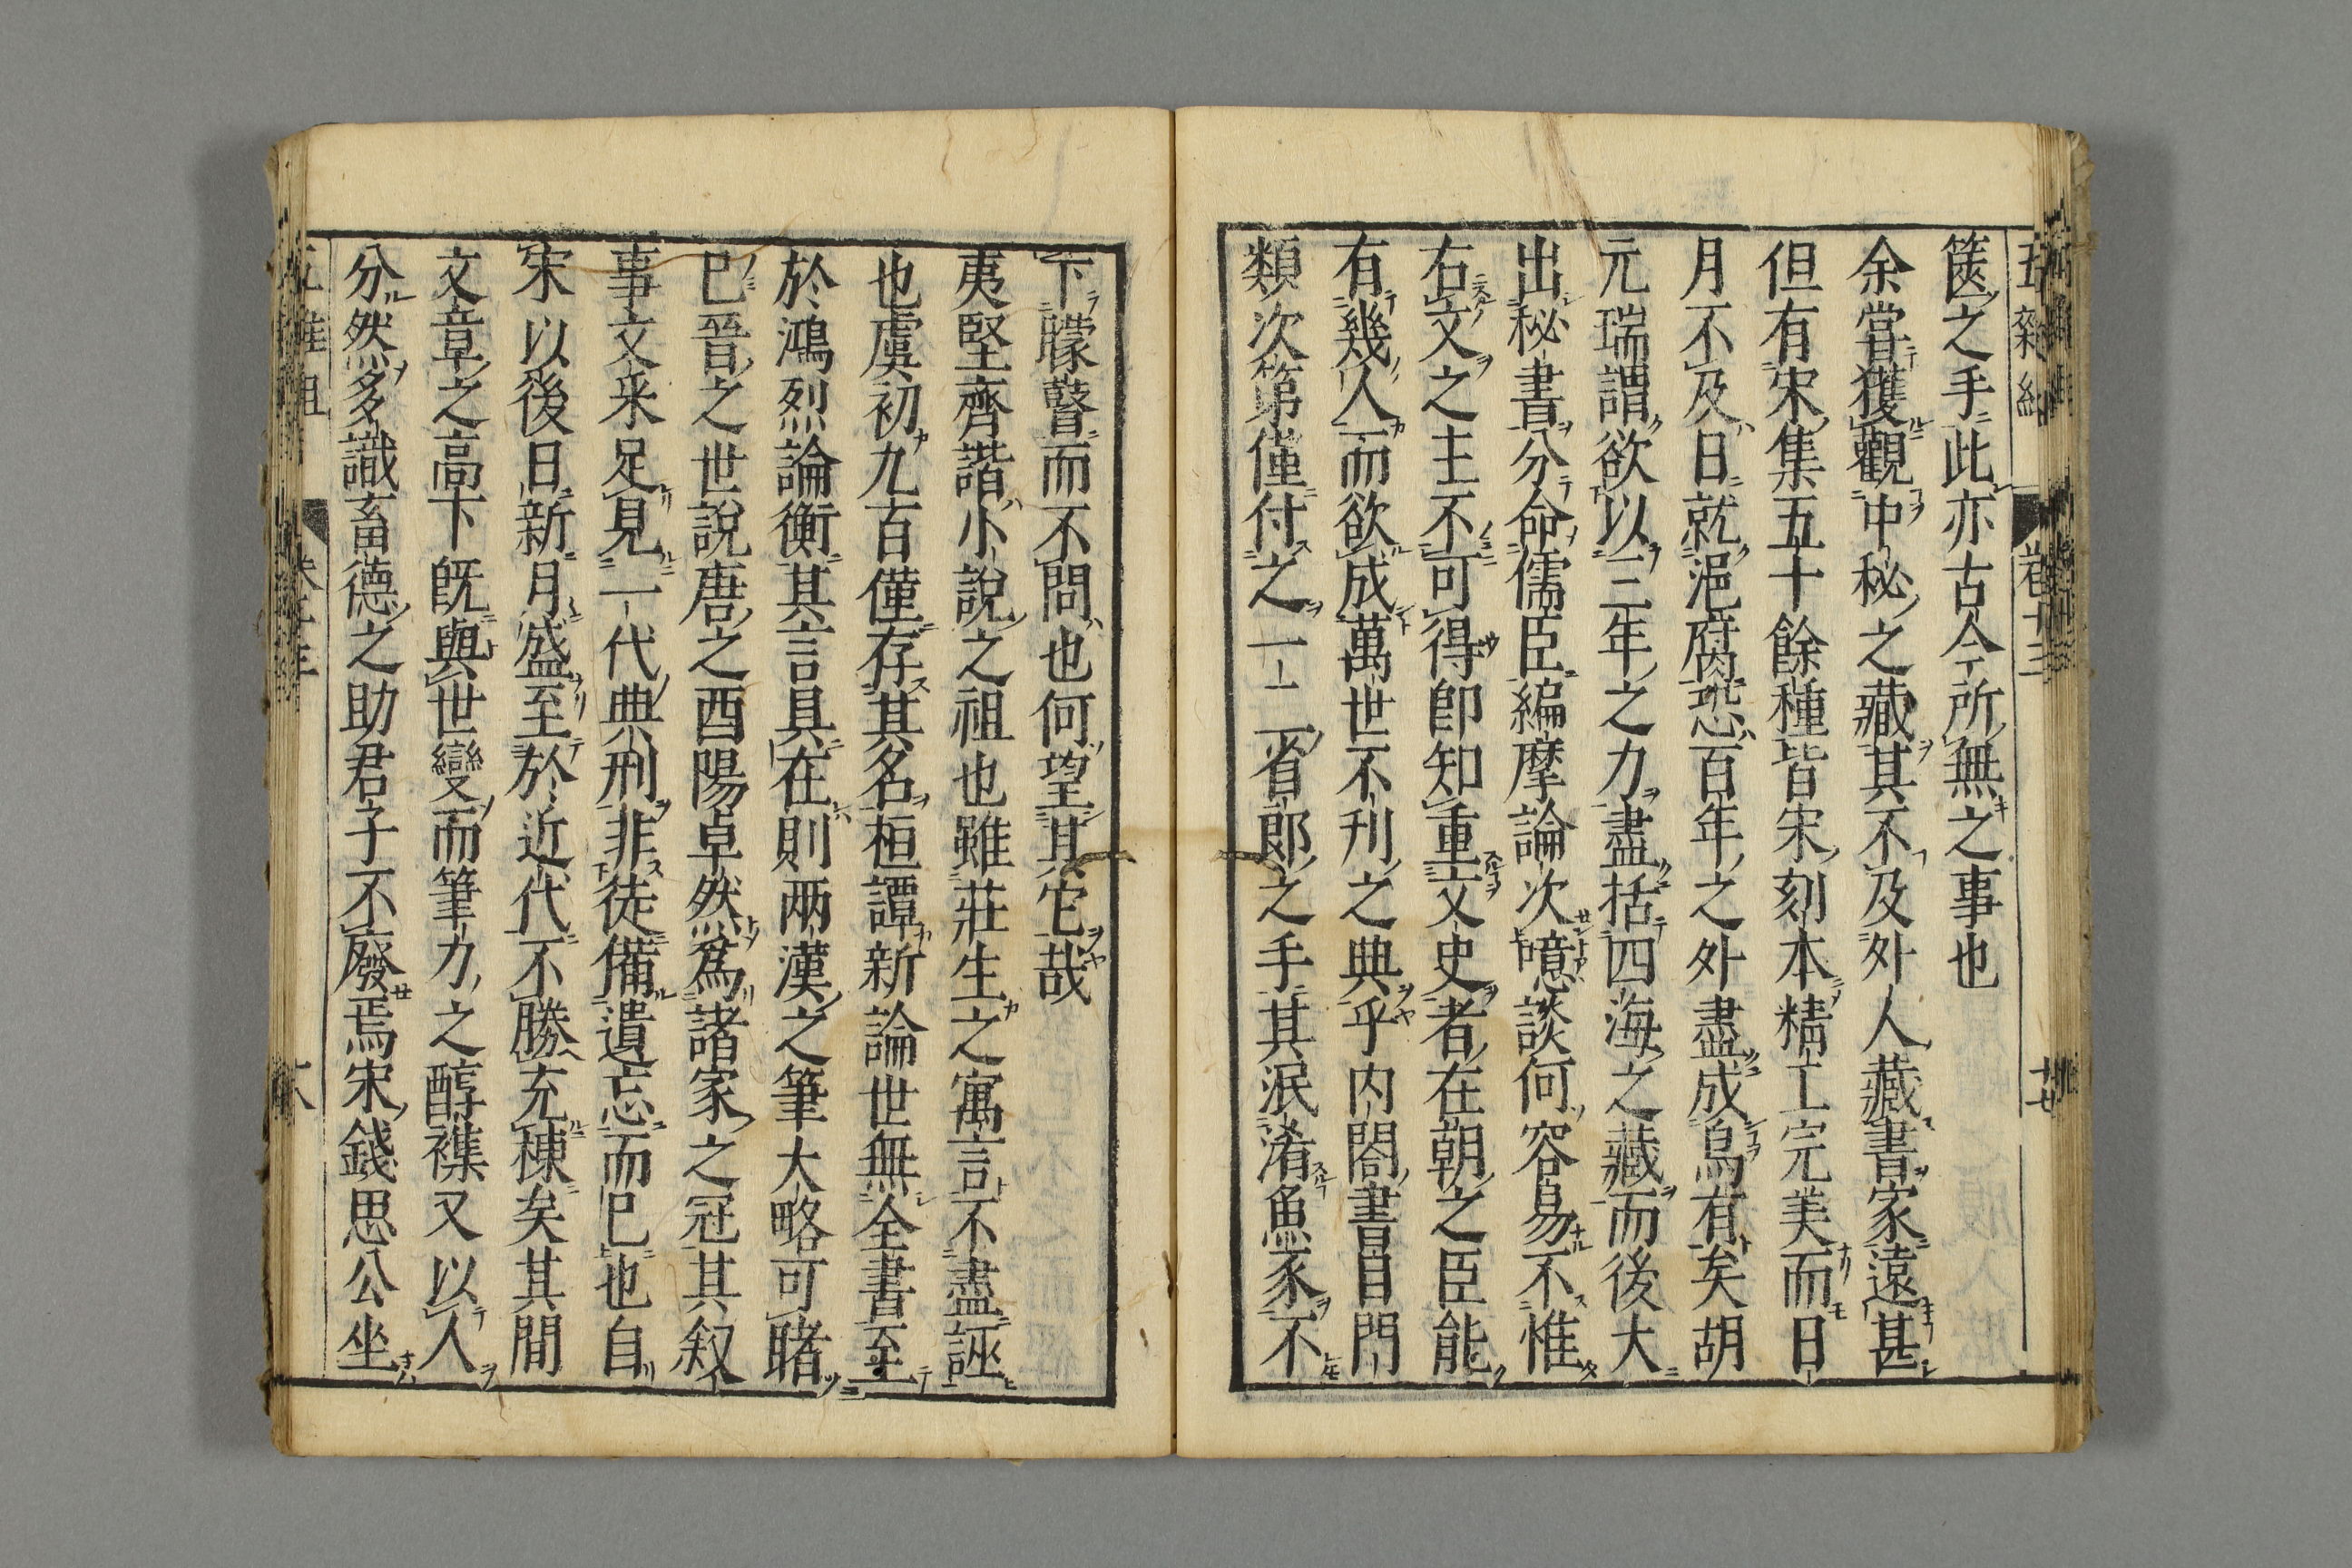 篋之手此亦古今所無之事也
余嘗獲觀中秘之藏其不及外人藏書家遠甚
但有宋集五十餘種皆宋刻本精工完美而日
月不及日就浥腐恐百年之外盡成烏有矣胡
元瑞謂欲以三年之力盡括四海之藏而後大
出秘書分命儒臣編摩論次噫談何容易不惟
右文之主不可得卽知重文史者在朝之臣能
有幾人而欲成萬世不刋之典乎内閤書目門
類次第僅付之一二省郎之手其泯淆魚豕不
下矇瞽而不問也何望其它哉
夷堅齊諧小說之祖也雖莊生之寓言不盡誣
也虞初九百僅存其名桓譚新論世無全書至
於鴻烈論衡其言具在則兩漢之筆大略可睹
已晉之世說唐之酉陽卓然爲諸家之冠其叙
事文采足見一代典刑非徒備遺忘而已也自
宋以後日新月盛至於近代不勝充棟矣其間
文章之高下旣與世變而筆力之醇襍又以人
分然多識畜德之助君子不廢焉宋錢思公坐